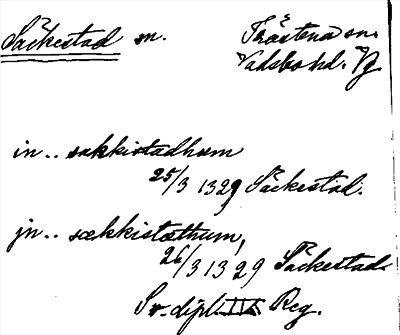 Säckestad sn. Trästena sn.
Vadsbo hd. Vg
in.. sakkistadhum
25/3 1329 Säckestad.
jn.. sækkistæthum,
26/3 1329 Säckestad.
Sv. dipl. Reg.